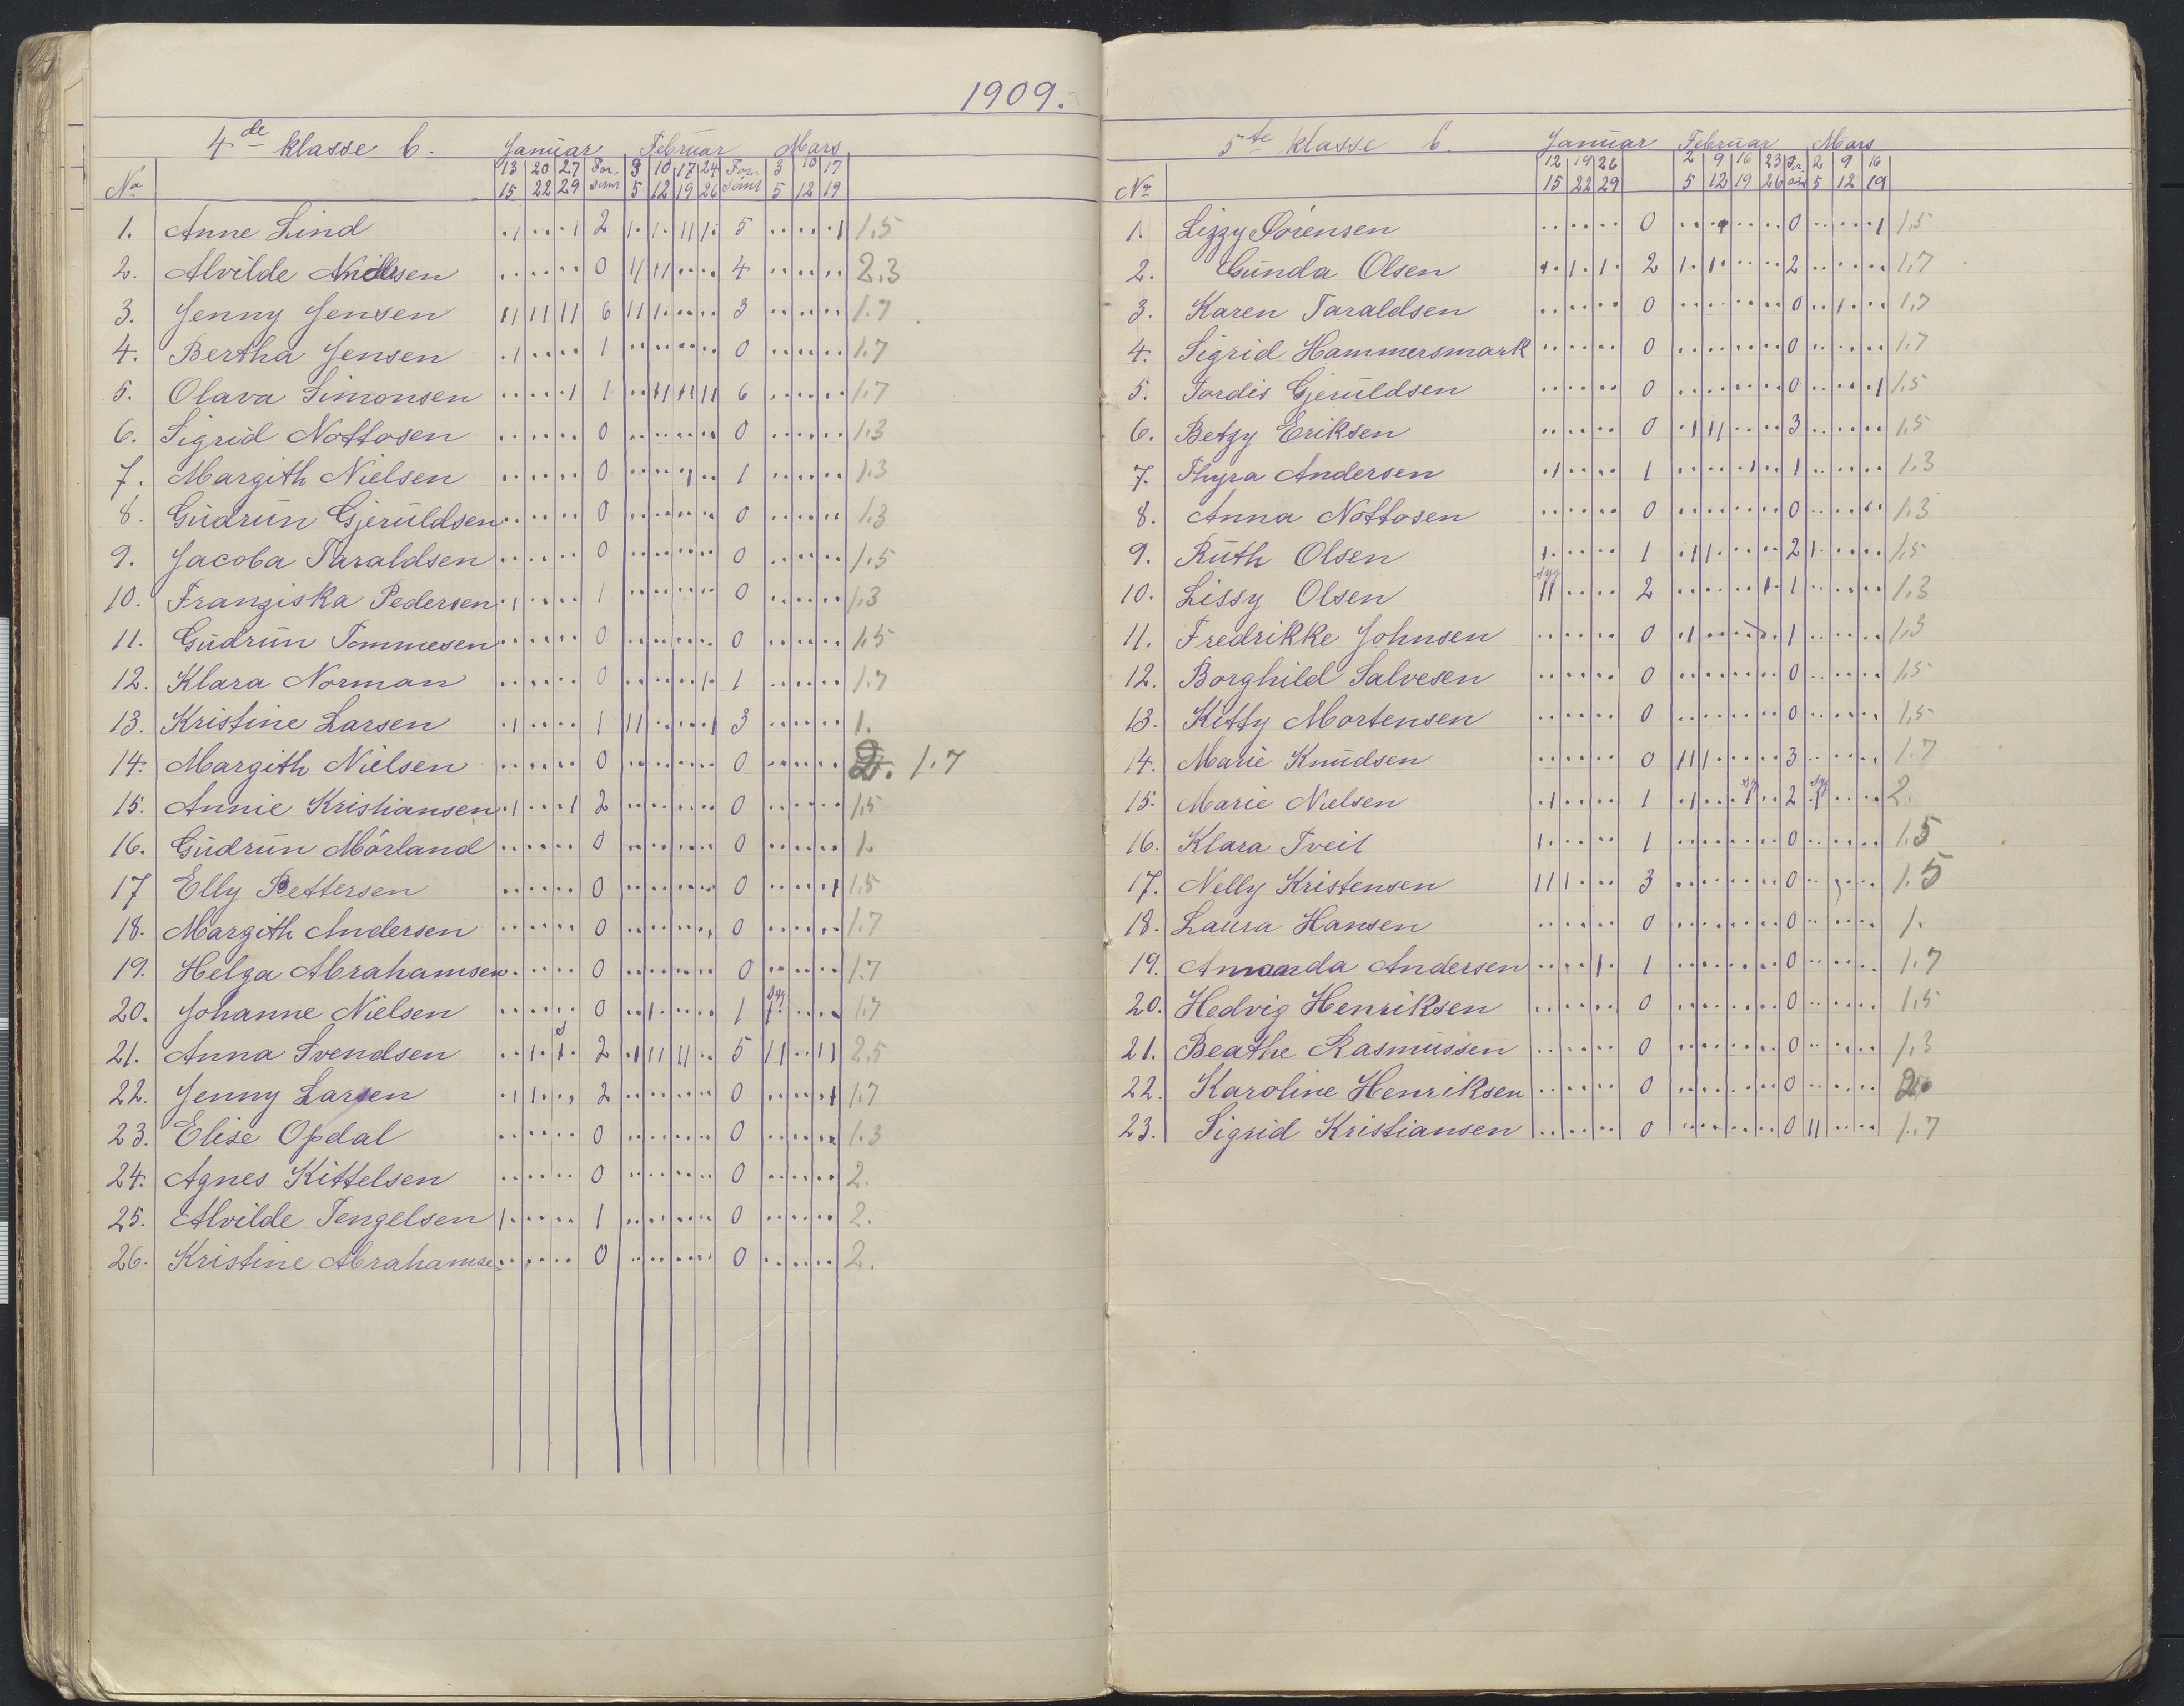 1909.
4de klasse b. Januar Februar Mars
No 13 20 27 For. 3 10 17 24 For. 3 10 17
15 22 29 sømt 5 12 19 26 sømt 5 12 19
1. Anne Lind 2 5 1.5
2. Alvilde Nielsen 0 4 2.3
3. Jenny Jensen 6 3 1.7
4. Bertha Jensen 1 0 1.7
5. Olava Simonsen 1 6 1.7
6. Sigrid Nottosen 0 0 1.3
7. Margith Nielsen 0 1 1.3
8. Gudrun Gjeruldsen 0 0 1.3
9. Jacoba Taraldsen 0 0 1.5
10. Franziska Pedersen 1 0 1.3
11. Gudrun Tommesen 0 0 1.5
12. Klara Norman 0 1 1.7
13. Kristine Larsen 1 3 1.
14. Margith Nielsen 0 0 2. 1.7
15. Annie Kristiansen 2 0 1.5
16. Gudrun Mörland 0 0 1.
17 Elly Pettersen 0 0 1.5
18. Margith Andersen 0 0 1.7
19. Helga Abrahamsen 0 0 1.7
20. Johanne Nielsen 0 1 syg 1.7
21. Anna Svendsen s 2 5 2.5
22. Jenny Larsen 2 0 1.7
23. Elise Opdal 0 0 1.3
24. Agnes Kittelsen 0 0 2.
25. Alvilde Tengelsen 1 0 2.
26. Kristine Abrahamse 0 0 2.
5te klasse b. Januar Februar Mars
No 12 19 26 2 9 16 23 For 2 9 16
15 22 29 5 12 19 26 sømt 5 12 19
1. Lizzy Sörensen 0 0 1.5
2. Gunda Olsen 2 2 1.7
3. Karen Taraldsen 0 0 1.7
4. Sigrid Hammersmark 0 0 1.7
5. Tordis Gjeruldsen 0 0 1.5
6. Betzy Eriksen 0 3 1.5
7. Thyra Andersen 1 1 1.3
8. Anna Nottosen 0 0 1.3
9. Ruth Olsen 1 2 1.5
10. Lissy Olsen syg 2 1 1.3
11. Fredrikke Johnsen 0 1 1.3
12. Borghild Salvesen 0 0 1.5
13. Kitty Mortensen 0 0 1.5
14. Marie Knudsen 0 3 1.7
15. Marie Nielsen 1 syg 2 syg 2.
16. Klara Tveit 1 0 1.5
17. Nelly Kristensen 3 0 1.5
18. Laura Hansen 0 0 1.
19. Amanda Andersen 1 0 1.7
20. Hedvig Henriksen 0 0 1.5
21. Beathe Rasmussen 0 0 1.3
22. Karoline Henriksen 0 0 2.
23. Sigrid Kristiansen 0 0 1.7